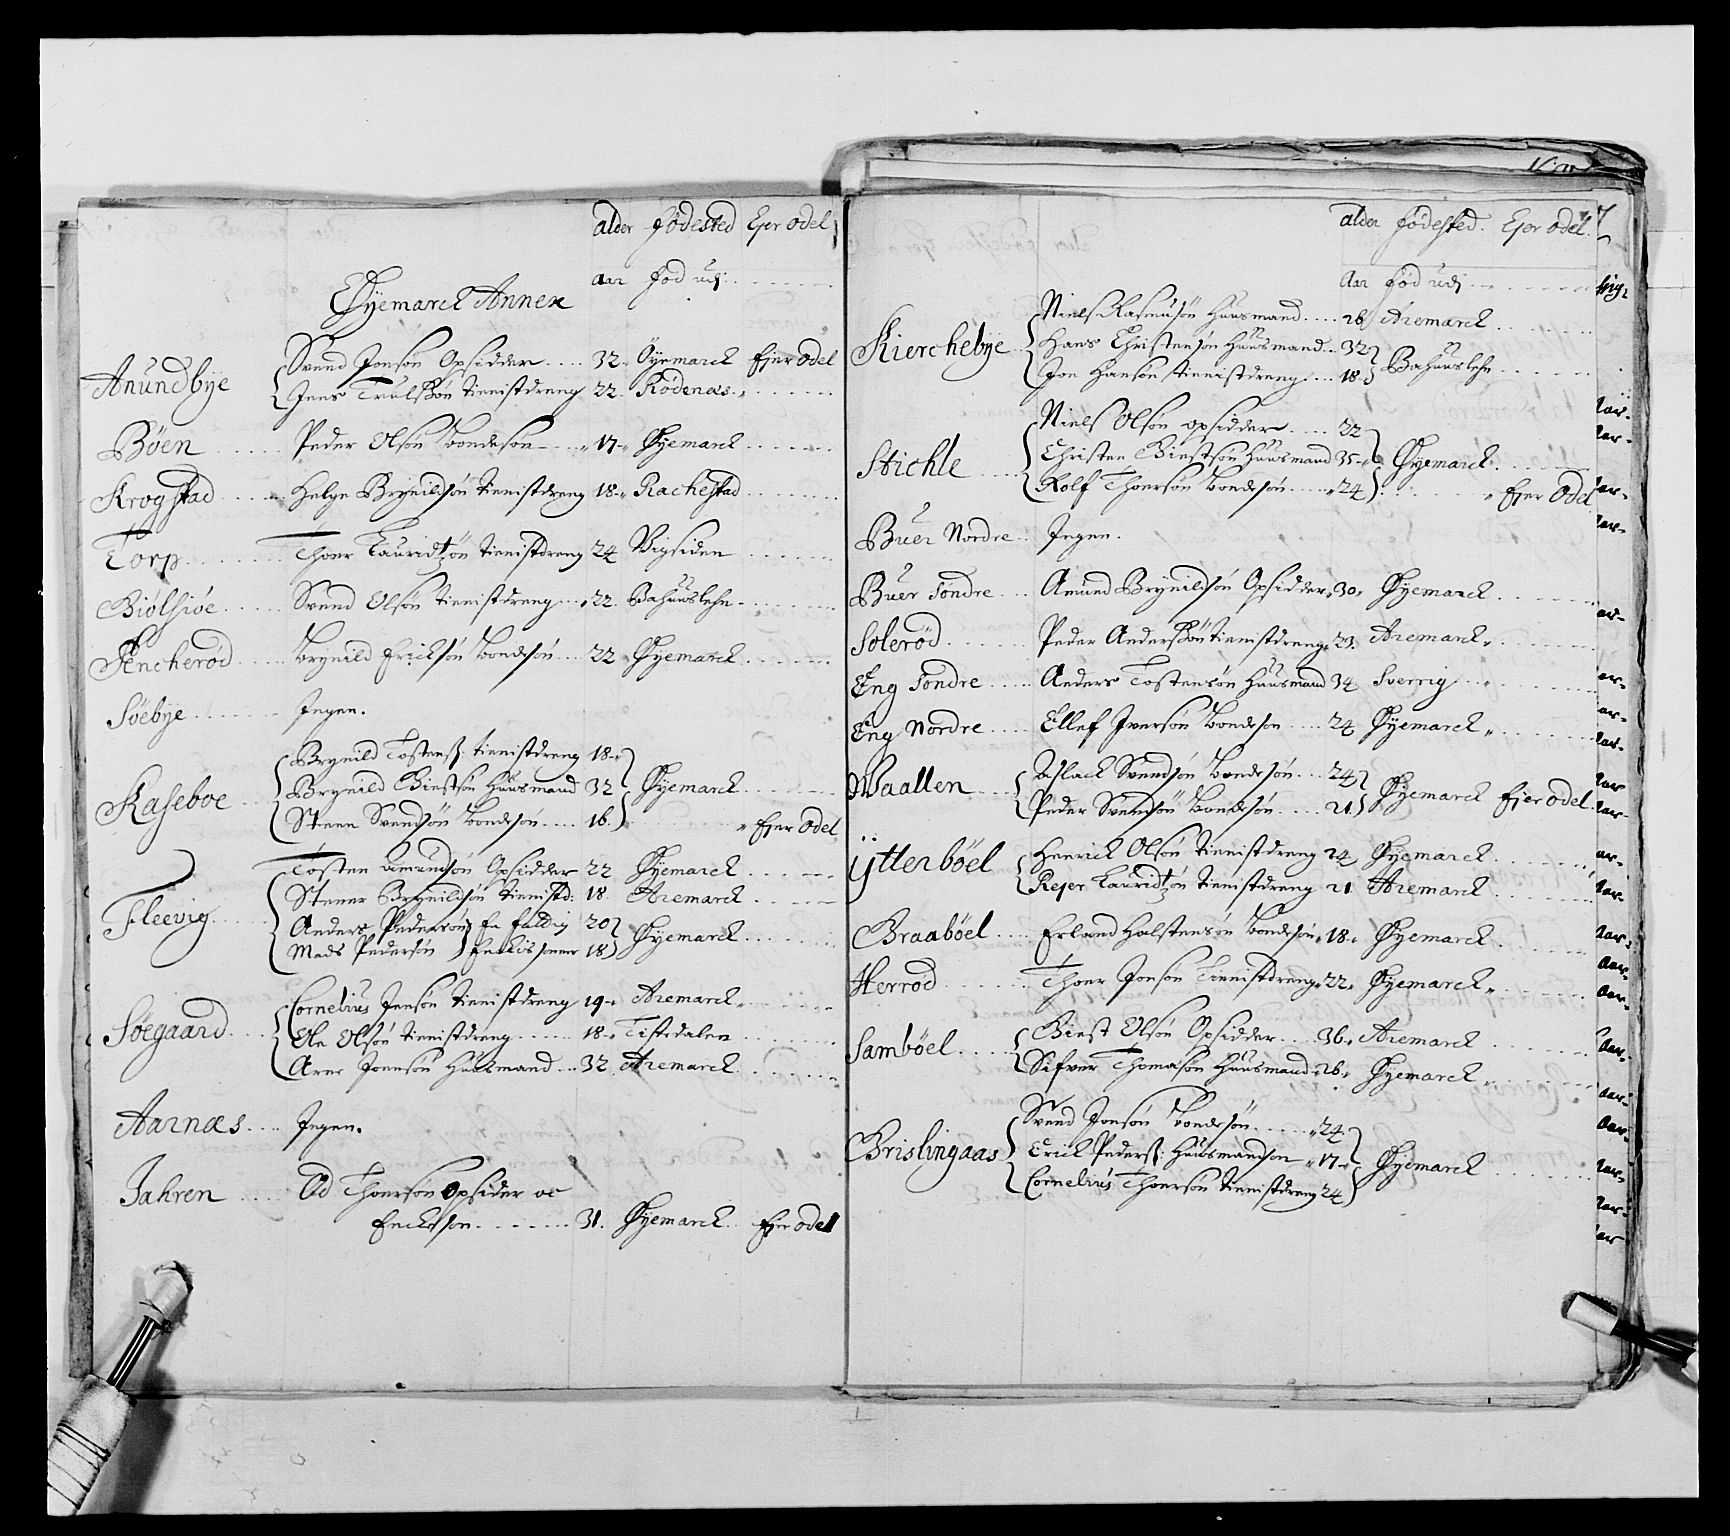 alder fødested Ejer odel
aar fød udj
Øyemarck Annex
Anundbye
Svend Jonsøn Opsidder 32 Öyemarck Ejer Odel
Jens Trulsøn tienistdreng 22 Rödenæs
Böen Peder Olsøn bondesøn 17 Øyemarck
Krogstad Helge Brynildsøn tienistdreng 18 Rachestad
Torp Thoer Lauridtzøn tienistdreng 24 Vigsiden
Biölsiöe Svend Olsøn tienistdreng 22 Bahuuslehn
Brynild Ericksøn bondesøn 22 Øyemarck
Söebye Ingen.
Kaseboe
Brynild Tostens: tienistdreng 18
Brynild Biestsøn Huusmand 32 Øyemarck
Steen Svendsøn bondesøn 16 Ejer Odel
Fleevig
Tosten Amundsøn Opsidder 22 Øyemarck
Stener Brynildsøn tienistd: 18 Aremarck
Anders Pedersøn 20 Øyemarck
Mads Pedersøn 18
Söegaard
Cornelius Jensøn tienistdreng 19 Aremarck
Ole Olsøn tienistdreng 18 Tistedalen
Arne Joensøn Huusmand 32 Aremarck
Aarnæs Ingen.
Jahren Od Thoersøn Opsider oc
Enckesøn 31 Øyemarck Ejer odel
alder fødested. Ejer odel. 7
Aar fød udj
Kierchebye
Niels Rasmusøn Huusmand 26 Aremarck
Hans Christensøn Huusmand 32 Bahuuslehn
Jon Hansøn tienistdreng 18
Stichle
Niels Olsøn opsidder 22
Christen Biestsøn Huusmand 35 Øyemarck
Rolf Thoersøn bondesøn 24 Ejer Odel
Buer Nordre Ingen.
Buer Söndre Amund Brynildsøn Opsidder 30 Øyemarck
Solerød Peder Andersøn tienistdreng 23 Aremarck
Eng Söndre Anders Tostensøn Huusmand 34 Sverrig
Eng Nordre Ellef Iversøn bondesøn 24 Øyemarck
Waallen
Aslack Svendsøn bondesøn 24 Øyemarck Ejer odel
Peder Svendsøn bondesøn 21
ÿtterböel
Henrick Olsøn tienistdreng 24 Øyemarck
Rejer Lauridtzøn tienistdreng 21 Aremarck
Braaböel Erland Halstensøn bondesøn 18 Øyemarck
Herröd Thoer Jonsøn tienistdreng 22 Øyemarck
Samböel
Biest Olsøn Opsidder 36 Aremarck
Sifver Thomasøn Huusmand 26 Øyemarck
Brislingaas
Svend Jonsøn bondesøn 24
Erick Peders: Huusmandsøn 17 Øyemarck
Cornelius Thoersøn tienistdreng 24